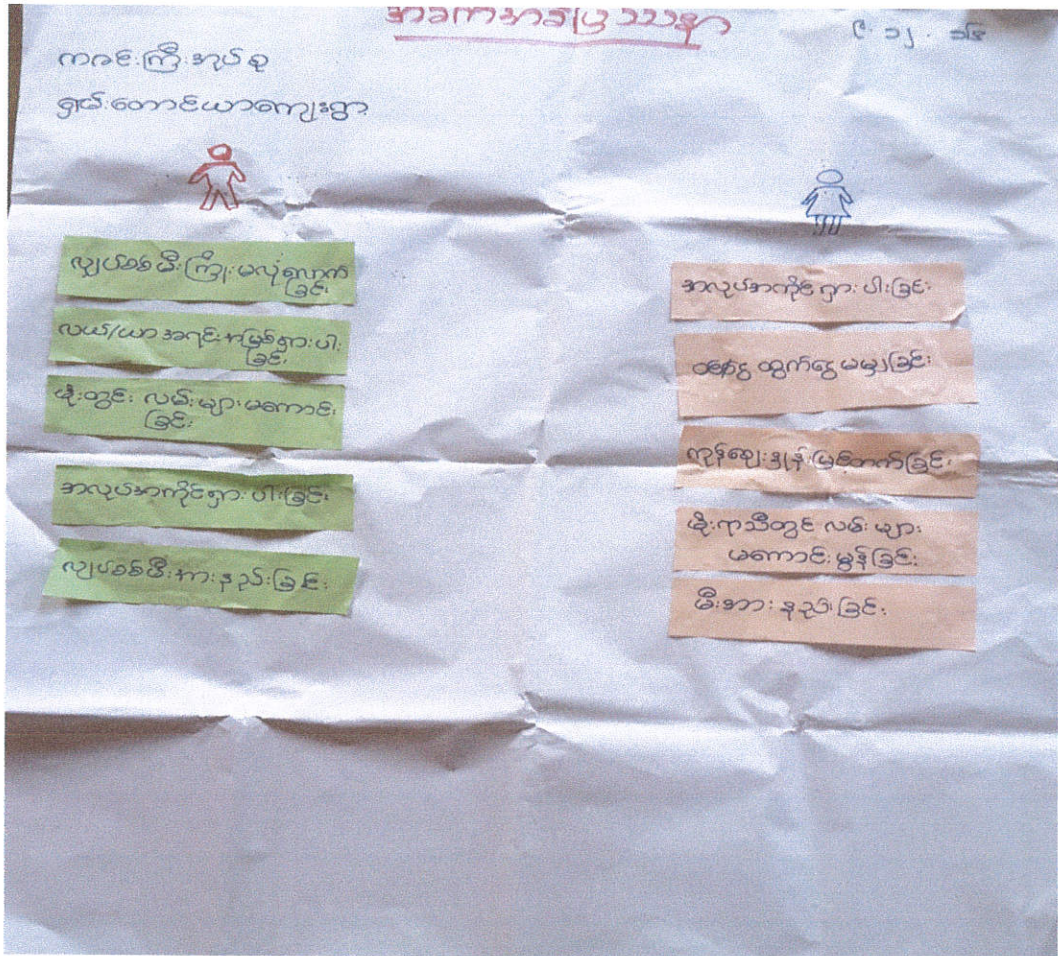 အခက်အခဲပြဿနာ
၉.၁၂.၁၆
ကဇင်းကြီးအုပ်စု
ရှမ်းတောင်ယာကျေးရွာ
လျှပ်စစ်မီးကြိုးမလုံလောက်
ခြင်း
လယ်/ယာ အရင်းအမြစ်ရှားပါး
ခြင်း
မိုးတွင်း လမ်းများ မကောင်း
ခြင်း
အလုပ်အကိုင်ရှားပါးခြင်း
လျှပ်စစ်မီးအားနည်းခြင်း
အလုပ်အကိုင်ရှားပါးခြင်း
ဝင်ငွေ ထွက်ငွေ မမျှခြင်း
ကုန်ဈေးနှုန်းမြင့်တက်ခြင်း
မိုးရာသီတွင် လမ်းများ
မကောင်းမွန်ခြင်း
မီးအား နည်းခြင်း